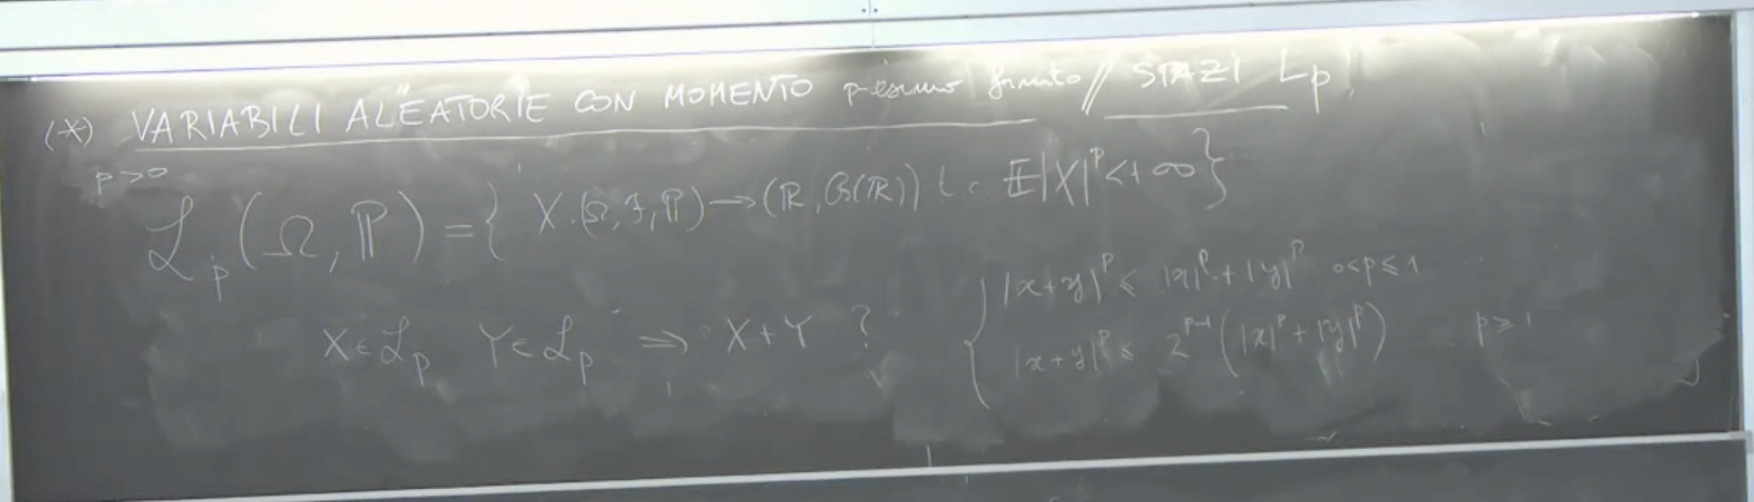 (*) VARIABILI ALEATORIE CON MOMENTO p-esimo finito // SPAZI Lp
p>0
ℒp(Ω,ℙ) = { X:(Ω,ℱ,ℙ)→(ℝ,ℬ(ℝ)) t.c. 𝔼|X|^p<+∞}
X∈ℒp Y∈ℒp ⇒ X+Y ?
{ |x+y|^p ≤ |x|^p + |y|^p 0<p≤1
|x+y|^p ≤ 2^{p-1}(|x|^p+|y|^p) p≥1